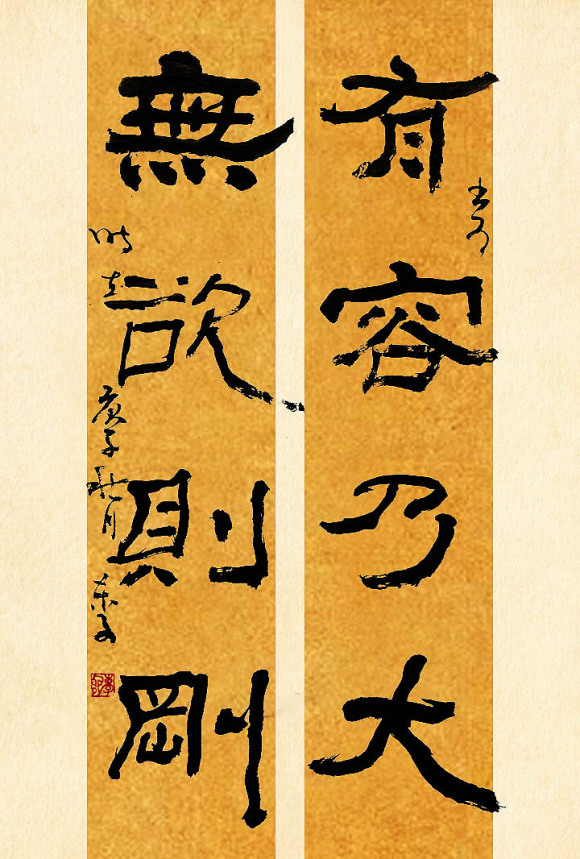 有容乃大
無欲則剛
庚子秋月